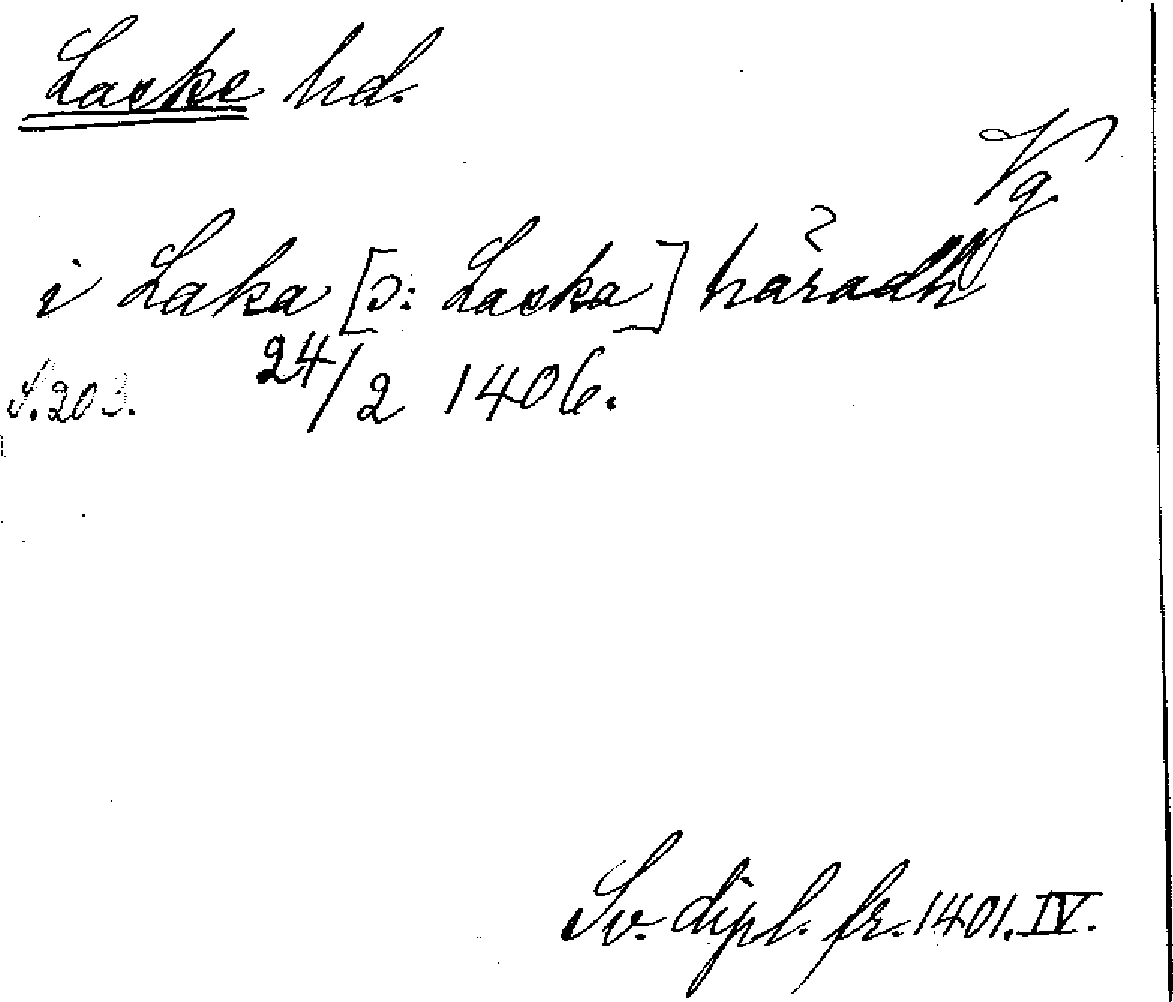 Laske hd.
Vg.
i Laka [ɔ: Laska] häradh
S. 203. 24/2 1406.
Sv. dipl. fr. 1401. IV.